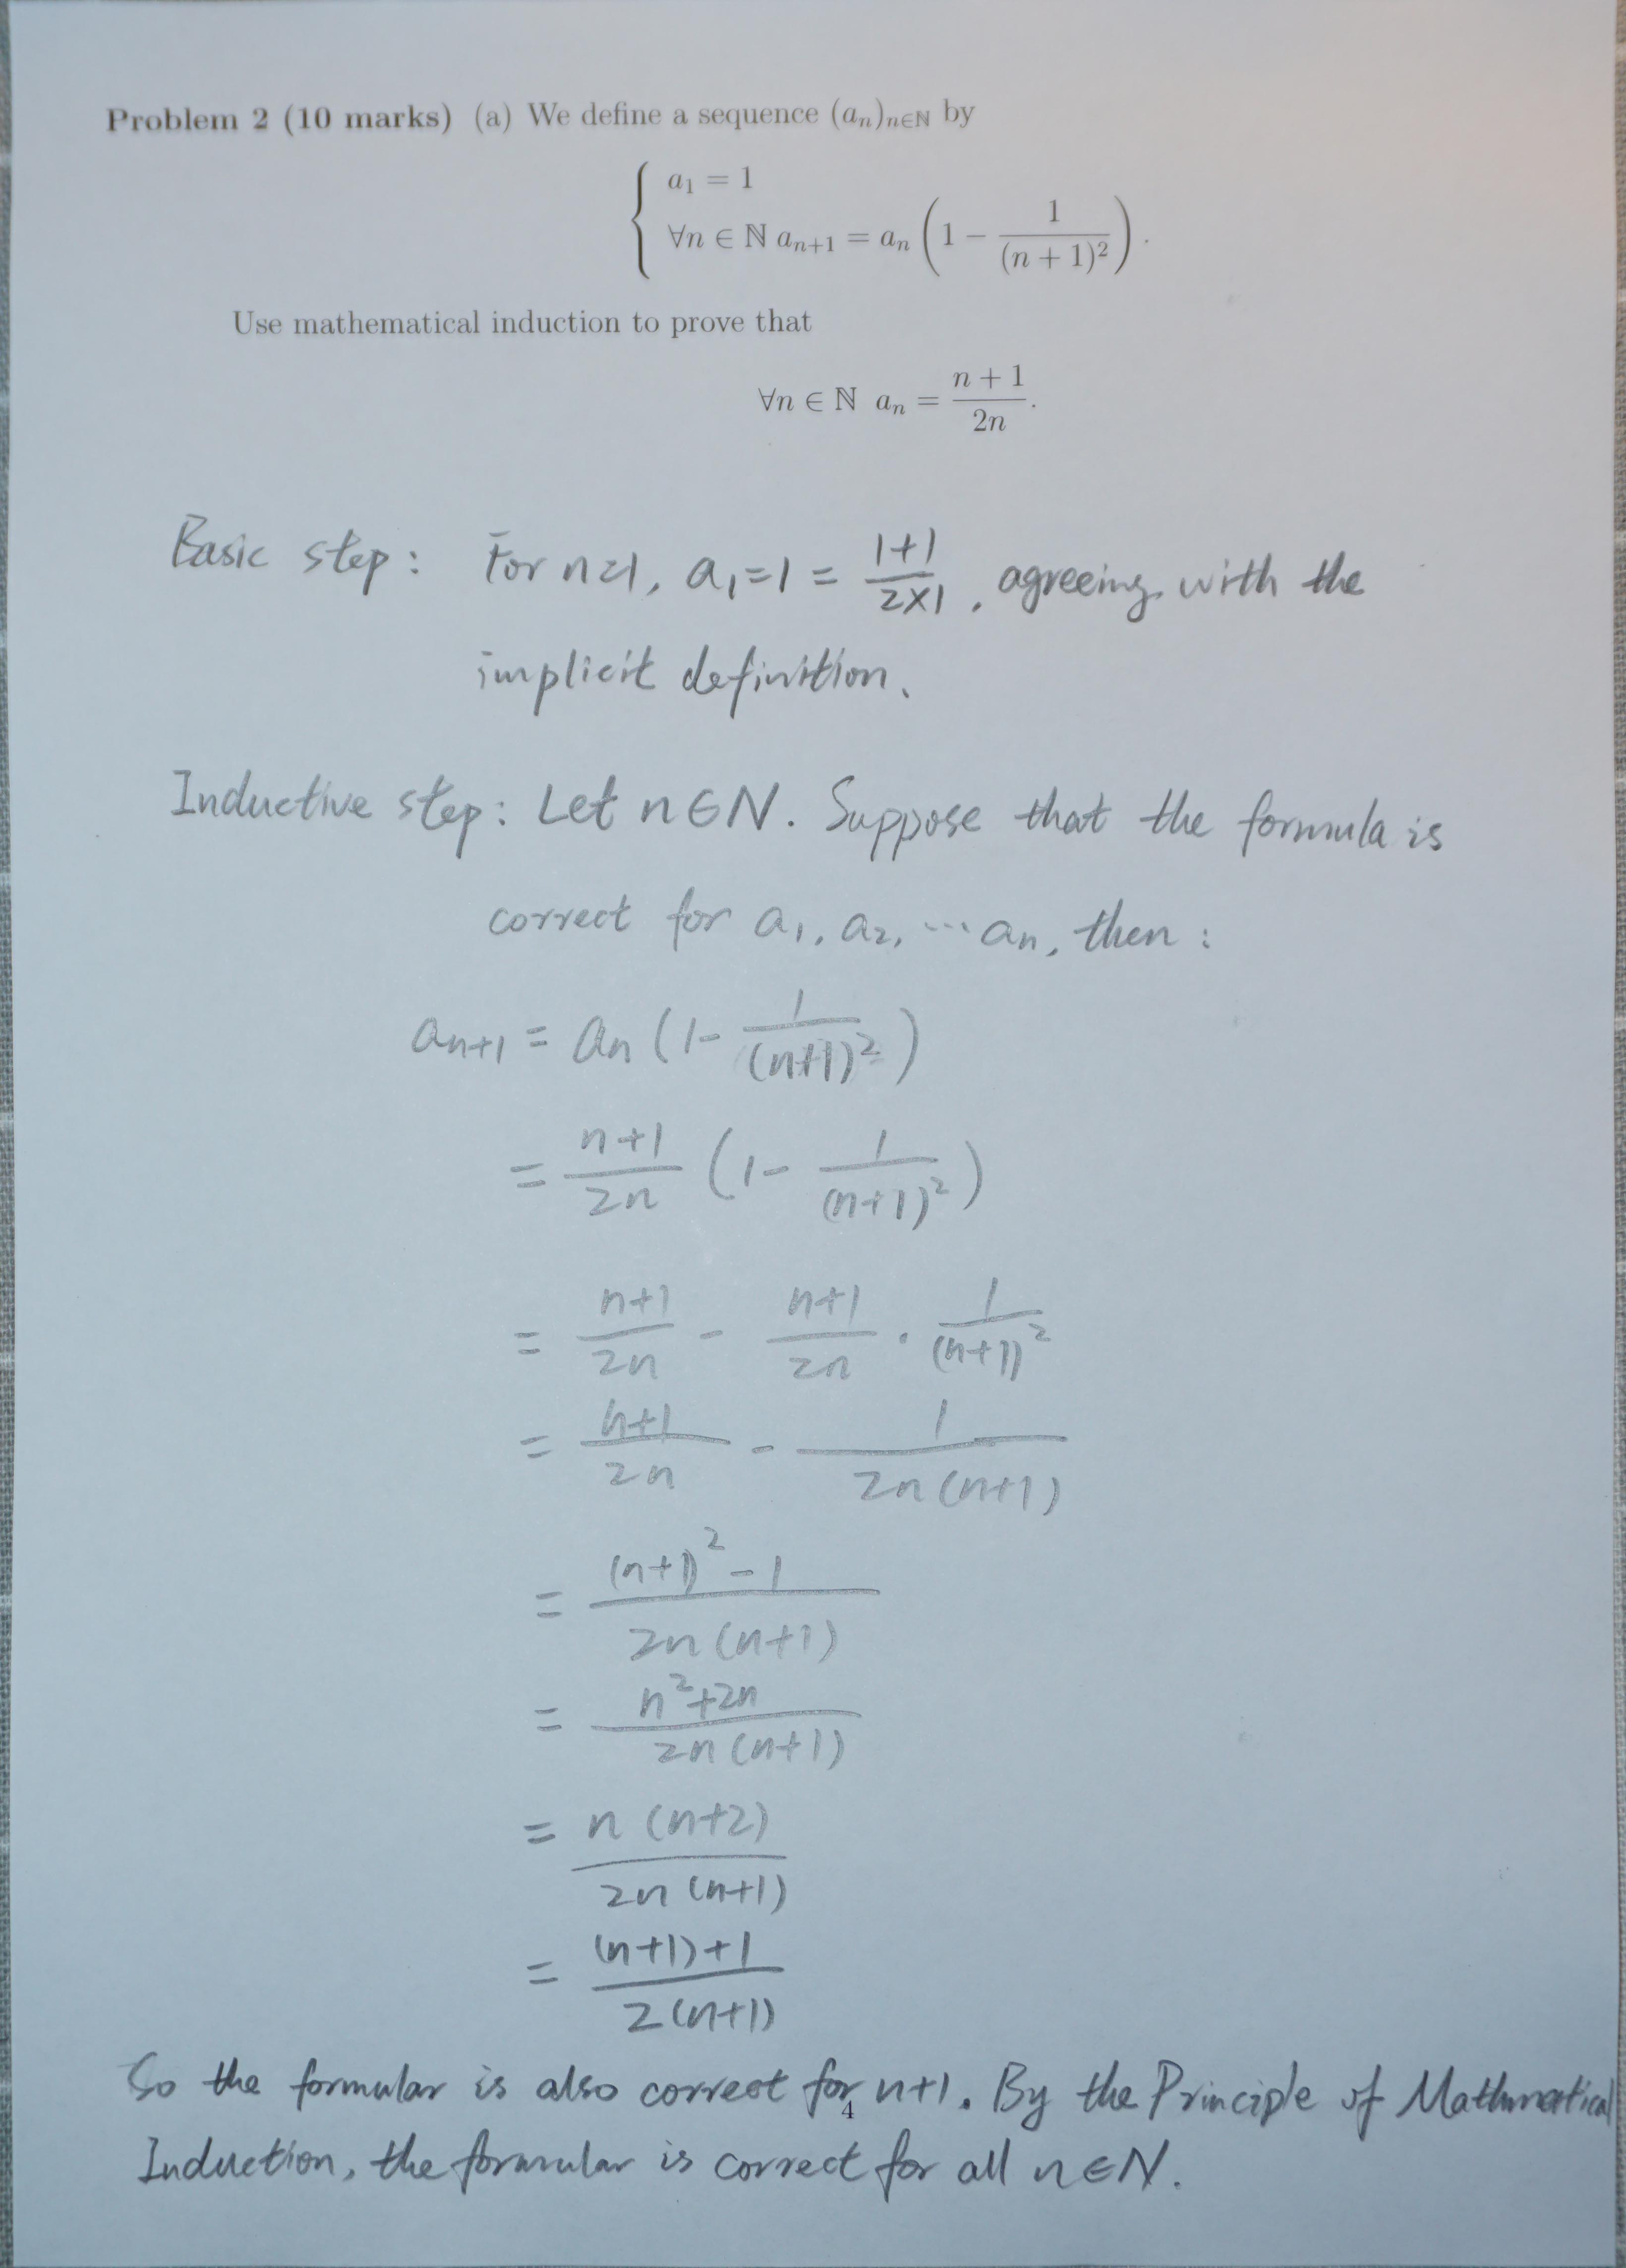 Problem 2 (10 marks) (a) We define a sequence (aₙ)ₙ∈ℕ by
{ a₁ = 1
∀n ∈ ℕ aₙ₊₁ = aₙ (1 − 1/(n + 1)²).
Use mathematical induction to prove that
∀n ∈ ℕ aₙ = (n + 1)/2n.
Basic step: For n=1, a₁=1 = (1+1)/(2×1), agreeing with the
implicit definition.
Inductive step: Let n∈N. Suppose that the formula is
correct for a₁, a₂, ⋯ aₙ, then:
aₙ₊₁ = aₙ (1 - 1/(n+1)²)
= (n+1)/2n (1 - 1/(n+1)²)
= (n+1)/2n - (n+1)/2n · 1/(n+1)²
= (n+1)/2n - 1/(2n(n+1))
= ((n+1)² - 1)/(2n(n+1))
= (n²+2n)/(2n(n+1))
= n(n+2)/(2n(n+1))
= ((n+1)+1)/(2(n+1))
So the formular is also correct for n+1. By the Principle of Mathmatical
4
Induction, the formular is correct for all n∈N.